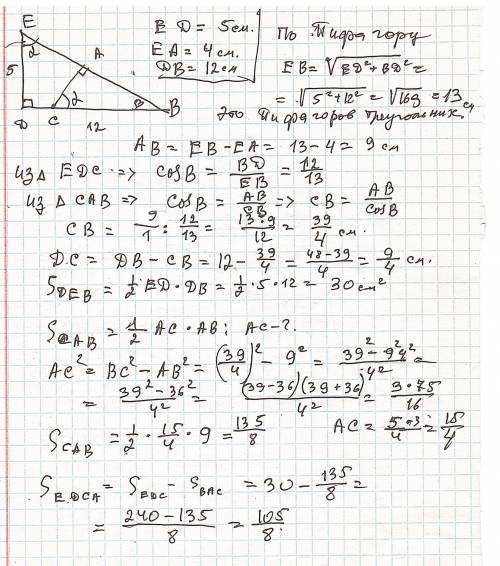 E
2
A
5
2
B
D C
12
ED = 5см.
EA = 4см.
DB = 12см
По Пифагору
EB = √ED²+BD² =
= √5²+12² = √169 = 13 см
Это Пифагоров треугольник.
AB = EB - EA = 13 - 4 = 9 см
из Δ EDC => cosB = BD/EB = 12/13
из Δ CAB => cosB = AB/CB => CB = AB/cosB
CB = 9/1 : 12/13 = 13·9/12 = 39/4 см.
D.C = DB - CB = 12 - 39/4 = 48-39/4 = 9/4 см.
SDEB = 1/2 ED·DB = 1/2·5·12 = 30см²
SCAB = 1/2 AC·AB; AC-?
AC² = BC² - AB² = (39/4)² - 9² = 39²-9²4²/4² =
= 39²-36²/4² = (39-36)(39+36)/4² = 3·75/16
SCAB = 1/2·15/4·9 = 135/8 AC = 5·3/4 = 15/4
SEDCA = SEDC - SBAC = 30 - 135/8 =
= 240-135/8 = 105/8.